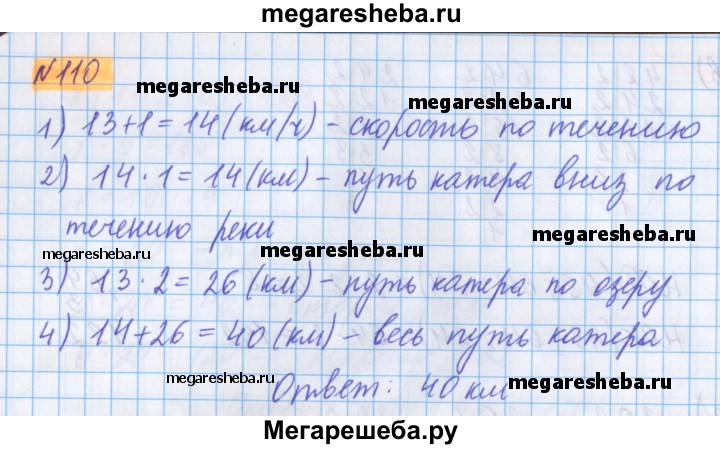 megaresheba.ru
№110
megaresheba.ru
megaresheba.ru
1) 13+1=14 (км/ч) - скорость по течению
2) 14·1=14 (км) - путь катера вниз по
течению реки
megaresheba.ru
megaresheba.ru
megaresheba.ru
3) 13·2=26 (км) - путь катера по озеру
4) 14+26=40 (км) - весь путь катера
megaresheba.ru
Ответ: 40 км
megaresheba.ru
Мегарешеба.ру